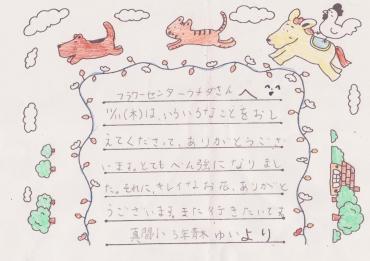 フラワーセンターウチダさんへ
11/1(木)は、いろいろなことをおし
えてくださって、ありがとうござ
います。とてもべん強になりまし
た。それに、キレイなお花、ありがと
うございます。また行きたいです。
真間小 3年青木 ゆいより